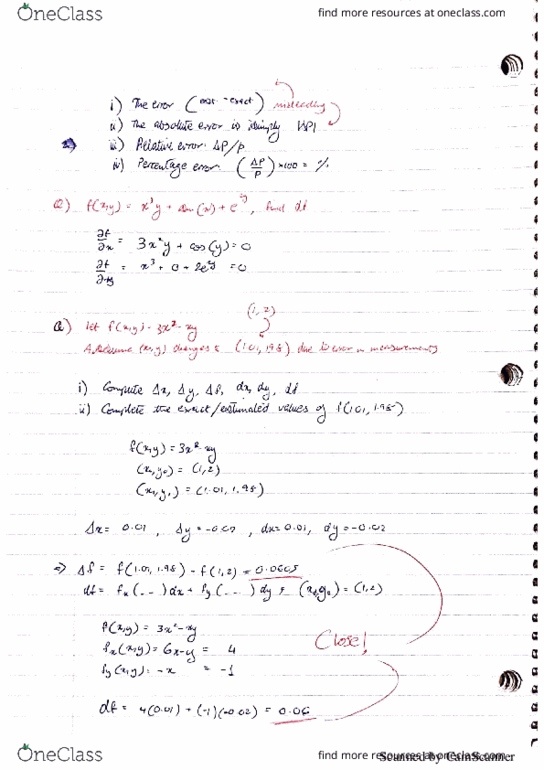 OneClass
find more resources at oneclass.com
i) The error (not - exact) misleading
ii) The absolute error is simply |ΔP|
iii) Relative error: ΔP/P
iv) Percentage error: (ΔP/P) ×100 = %
Q) f(x,y) = x³y + sin(x) + e^2y, find df
∂f/∂x = 3x²y + cos(y) = 0
∂f/∂y = x³ + 0 + 2e^2y = 0
(1, 2)
Q) let f(x,y) = 3x² - xy
Assume (x,y) changes to (1.01, 1.98) due to error in measurements
i) Compute Δx, Δy, Δf, dx, dy, df
ii) Compute the exact/estimated values of f(1.01, 1.98)
f(x,y) = 3x² - xy
(x₀,y₀) = (1,2)
(x₁,y₁) = (1.01, 1.98)
Δx = 0.01 , Δy = -0.02 , dx = 0.01, dy = -0.02
=> Δf = f(1.01, 1.98) - f(1,2) = 0.0605
df = fx(...) dx + fy(...) dy (x₀,y₀) = (1,2)
f(x,y) = 3x² - xy
fx(x,y) = 6x-y = 4
fy(x,y) = -x = -1
Close!
df = 4(0.01) + (-1)(-0.02) = 0.06
OneClass
find more resources at oneclass.com
Scanned by CamScanner